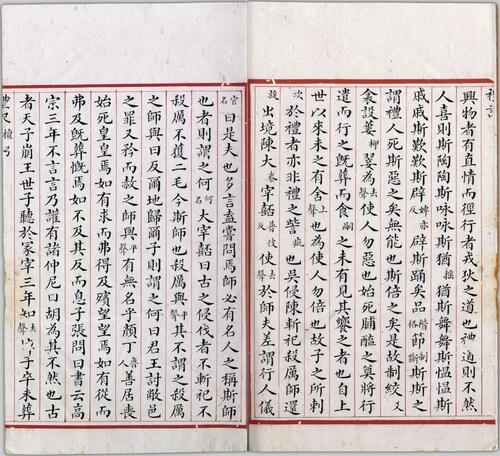 禮記
興物者有直情而徑行者戎狄之道也禮道則不然
人喜則斯陶陶斯咏咏斯猶搖猶斯舞舞斯慍慍斯
戚戚斯歎歎斯辟婢亦反辟斯踊矣品階格節制斯斯之
謂禮人死斯惡之矣無能也斯倍之矣是故制絞爻
衾設蔞柳翣為去聲使人勿惡也始死脯醢之奠將行
遣而行之既葬而食嗣之未有見其饗之者也自上
世以來未之有舍上聲也為使人勿倍也故子之所刺
次於禮者亦非禮之訾疵也吳侵陳斬祀殺厲師還
旋出境陳大泰宰嚭普彼反使去聲於師夫差謂行人儀
官名曰是夫也多言盍嘗問焉師必有名人之稱斯師
也者則謂之何何名大宰嚭曰古之侵伐者不斬祀不
殺厲不獲二毛今斯師也殺厲與平聲其不謂之殺厲
之師與曰反爾地歸爾子則謂之何曰君王討敝邑
之罪又矜而赦之師與平聲有無名乎顏丁魯人善居喪
始死皇皇焉如有求而弗得及殯望望焉如有從而
弗及既葬慨焉如不及其反而息子張問曰書云高
宗三年不言言乃讙有諸仲尼曰胡為其不然也古
者天子崩王世子聽於冢宰三年知去聲子卒未葬
禮記檀弓